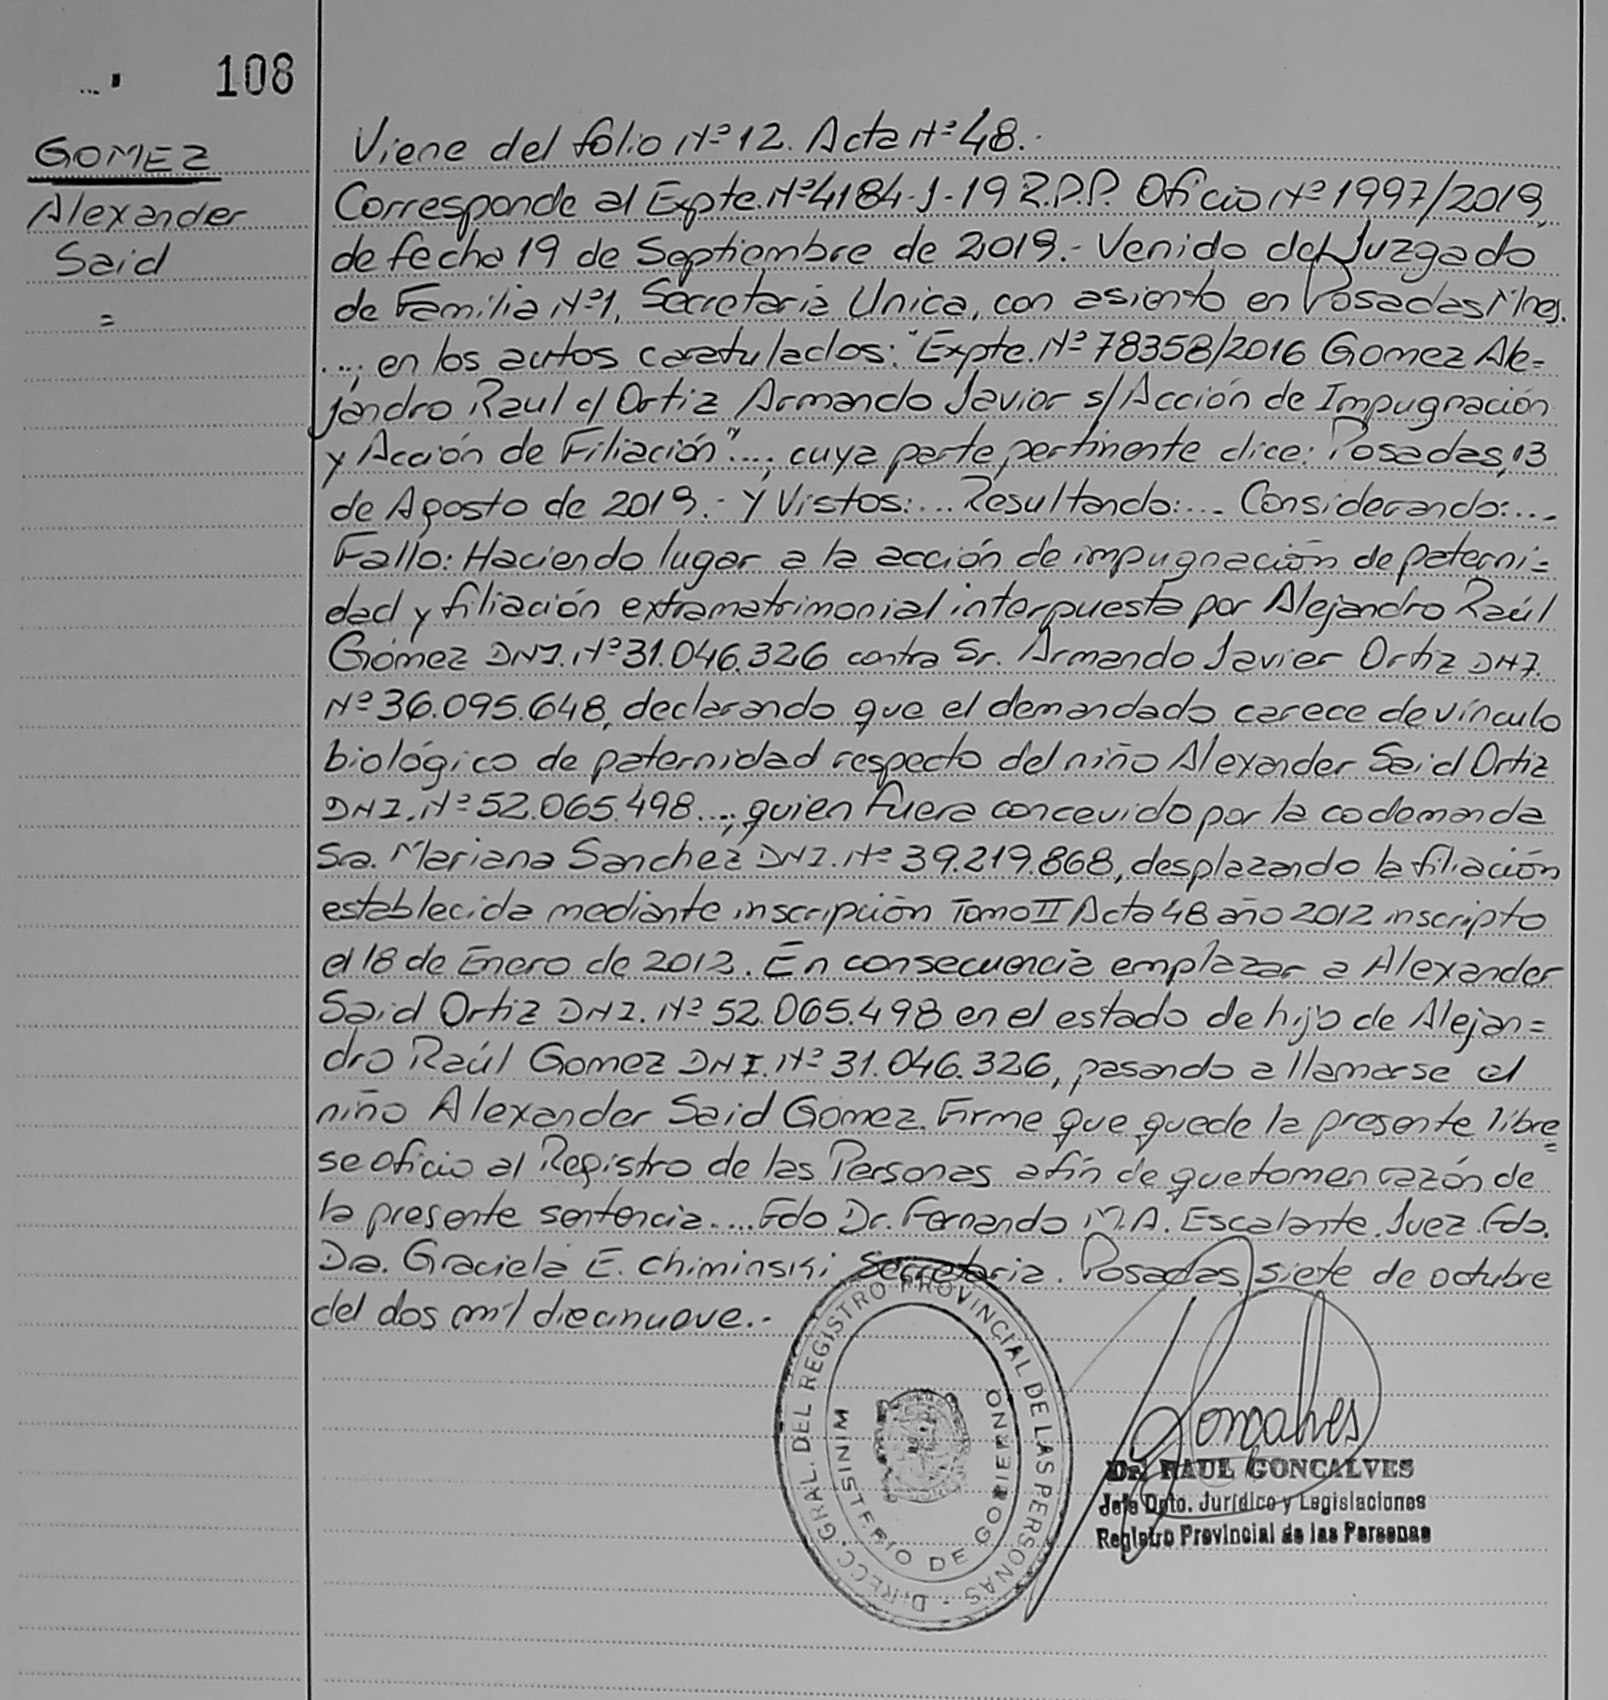 108
GOMEZ
Alexander
Said
=
Viene del folio Nº 12. Acta Nº 48.-
Corresponde al Expte. Nº 4184-J-19 R.P.P. Oficio Nº 1997/2019,
de fecha 19 de Septiembre de 2019.- Venido del Juzgado
de Familia Nº 1, Secretaria Unica, con asiento en Posadas Mnes.
...; en los autos caratulados: "Expte. Nº 78358/2016 Gomez Ale=
jandro Raul c/ Ortiz Armando Javier s/ Acción de Impugnación
y Acción de Filiación"...; cuya parte pertinente dice: Posadas, 13
de Agosto de 2019.- Y Vistos:... Resultando:... Considerando:...
Fallo: Haciendo lugar a la acción de impugnación de paterni=
dad y filiación extramatrimonial interpuesta por Alejandro Raúl
Gómez DNI. Nº 31.046.326 contra Sr. Armando Javier Ortiz DNI.
Nº 36.095.648, declarando que el demandado carece de vínculo
biológico de paternidad respecto del niño Alexander Said Ortiz
DNI. Nº 52.065.498...; quien fuera concevido por la codemanda
Sra. Mariana Sanchez DNI. Nº 39.219.868, desplazando la filiación
establecida mediante inscripción Tomo II Acta 48 año 2012 inscripto
el 18 de Enero de 2012. En consecuencia emplazar a Alexander
Said Ortiz DNI. Nº 52.065.498 en el estado de hijo de Alejan=
dro Raúl Gomez DNI. Nº 31.046.326, pasando a llamarse el
niño Alexander Said Gómez. Firme que quede la presente libre=
se oficio al Registro de las Personas a fin de que tomen razón de
la presente sentencia.... Fdo Dr. Fernando M.A. Escalante. Juez. Fdo.
Dra. Graciela E. Chiminski Secretaria. Posadas, siete de octubre
del dos mil diecinueve.-
DIRECC. GRAL. DEL REGISTRO PROVINCIAL DE LAS PERSONAS
MINISTERIO DE GOBIERNO
Gonçalves
Dr. RAUL GONCALVES
Jefe Dpto. Jurídico y Legislaciones
Registro Provincial de las Personas